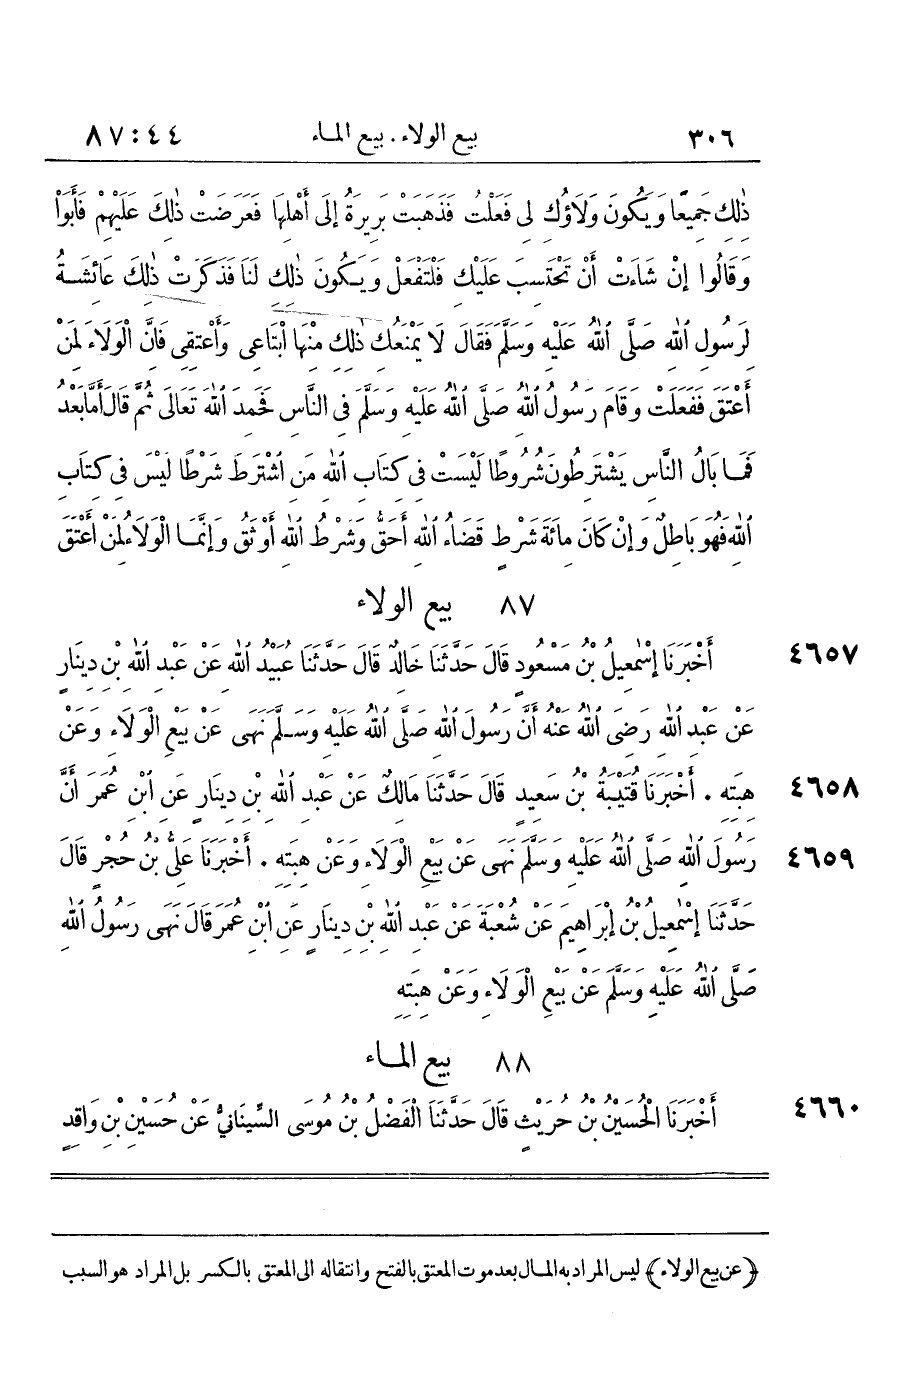 ٣٠٦ بيع الولاء . بيع الماء ٤٤ : ٨٧
ذٰلِكِ جَمِيعًا وَيَكُونَ وَلَاؤُكِ لِى فَعَلْتُ فَذَهَبَتْ بَرِيرَةُ إِلَى أَهْلِهَا فَعَرَضَتْ ذٰلِكَ عَلَيْهِمْ فَأَبَوْا
وَقَالُوا إِنْ شَاءَتْ أَنْ تَحْتَسِبَ عَلَيْكِ فَلْتَفْعَلْ وَيَكُونَ ذٰلِكِ لَنَا فَذَكَرَتْ ذٰلِكَ عَائِشَةُ
لِرَسُولِ اللهِ صَلَّى اللهُ عَلَيْهِ وَسَلَّمَ فَقَالَ لَا يَمْنَعُكِ ذٰلِكِ مِنْهَا ابْتَاعِى وَأَعْتِقِى فَإِنَّ الْوَلَاءَ لِمَنْ
أَعْتَقَ فَفَعَلَتْ وَقَامَ رَسُولُ اللهِ صَلَّى اللهُ عَلَيْهِ وَسَلَّمَ فِى النَّاسِ فَحَمِدَ اللهَ تَعَالَى ثُمَّ قَالَ أَمَّا بَعْدُ
فَمَا بَالُ النَّاسِ يَشْتَرِطُونَ شُرُوطًا لَيْسَتْ فِى كِتَابِ اللهِ مَنِ اشْتَرَطَ شَرْطًا لَيْسَ فِى كِتَابِ
اللهِ فَهُوَ بَاطِلٌ وَإِنْ كَانَ مِائَةَ شَرْطٍ قَضَاءُ اللهِ أَحَقُّ وَشَرْطُ اللهِ أَوْثَقُ وَإِنَّمَا الْوَلَاءُ لِمَنْ أَعْتَقَ
٨٧ بيع الولاء
٤٦٥٧ أَخْبَرَنَا إِسْمٰعِيلُ بْنُ مَسْعُودٍ قَالَ حَدَّثَنَا خَالِدٌ قَالَ حَدَّثَنَا عُبَيْدُ اللهِ عَنْ عَبْدِ اللهِ بْنِ دِينَارٍ
عَنْ عَبْدِ اللهِ رَضِىَ اللهُ عَنْهُ أَنَّ رَسُولَ اللهِ صَلَّى اللهُ عَلَيْهِ وَسَلَّمَ نَهَى عَنْ بَيْعِ الْوَلَاءِ وَعَنْ
٤٦٥٨ هِبَتِهِ . أَخْبَرَنَا قُتَيْبَةُ بْنُ سَعِيدٍ قَالَ حَدَّثَنَا مَالِكٌ عَنْ عَبْدِ اللهِ بْنِ دِينَارٍ عَنِ ابْنِ عُمَرَ أَنَّ
٤٦٥٩ رَسُولَ اللهِ صَلَّى اللهُ عَلَيْهِ وَسَلَّمَ نَهَى عَنْ بَيْعِ الْوَلَاءِ وَعَنْ هِبَتِهِ . أَخْبَرَنَا عَلِىُّ بْنُ حُجْرٍ قَالَ
حَدَّثَنَا إِسْمٰعِيلُ بْنُ إِبْرَاهِيمَ عَنْ شُعْبَةَ عَنْ عَبْدِ اللهِ بْنِ دِينَارٍ عَنِ ابْنِ عُمَرَ قَالَ نَهَى رَسُولُ اللهِ
صَلَّى اللهُ عَلَيْهِ وَسَلَّمَ عَنْ بَيْعِ الْوَلَاءِ وَعَنْ هِبَتِهِ
٨٨ بيع الماء
٤٦٦٠ أَخْبَرَنَا الْحُسَيْنُ بْنُ حُرَيْثٍ قَالَ حَدَّثَنَا الْفَضْلُ بْنُ مُوسَى السِّينَانِيُّ عَنْ حُسَيْنِ بْنِ وَاقِدٍ
﴿عن بيع الولاء﴾ ليس المراد به المال بعد موت المعتق بالفتح وانتقاله الى المعتق بالكسر بل المراد هو السبب